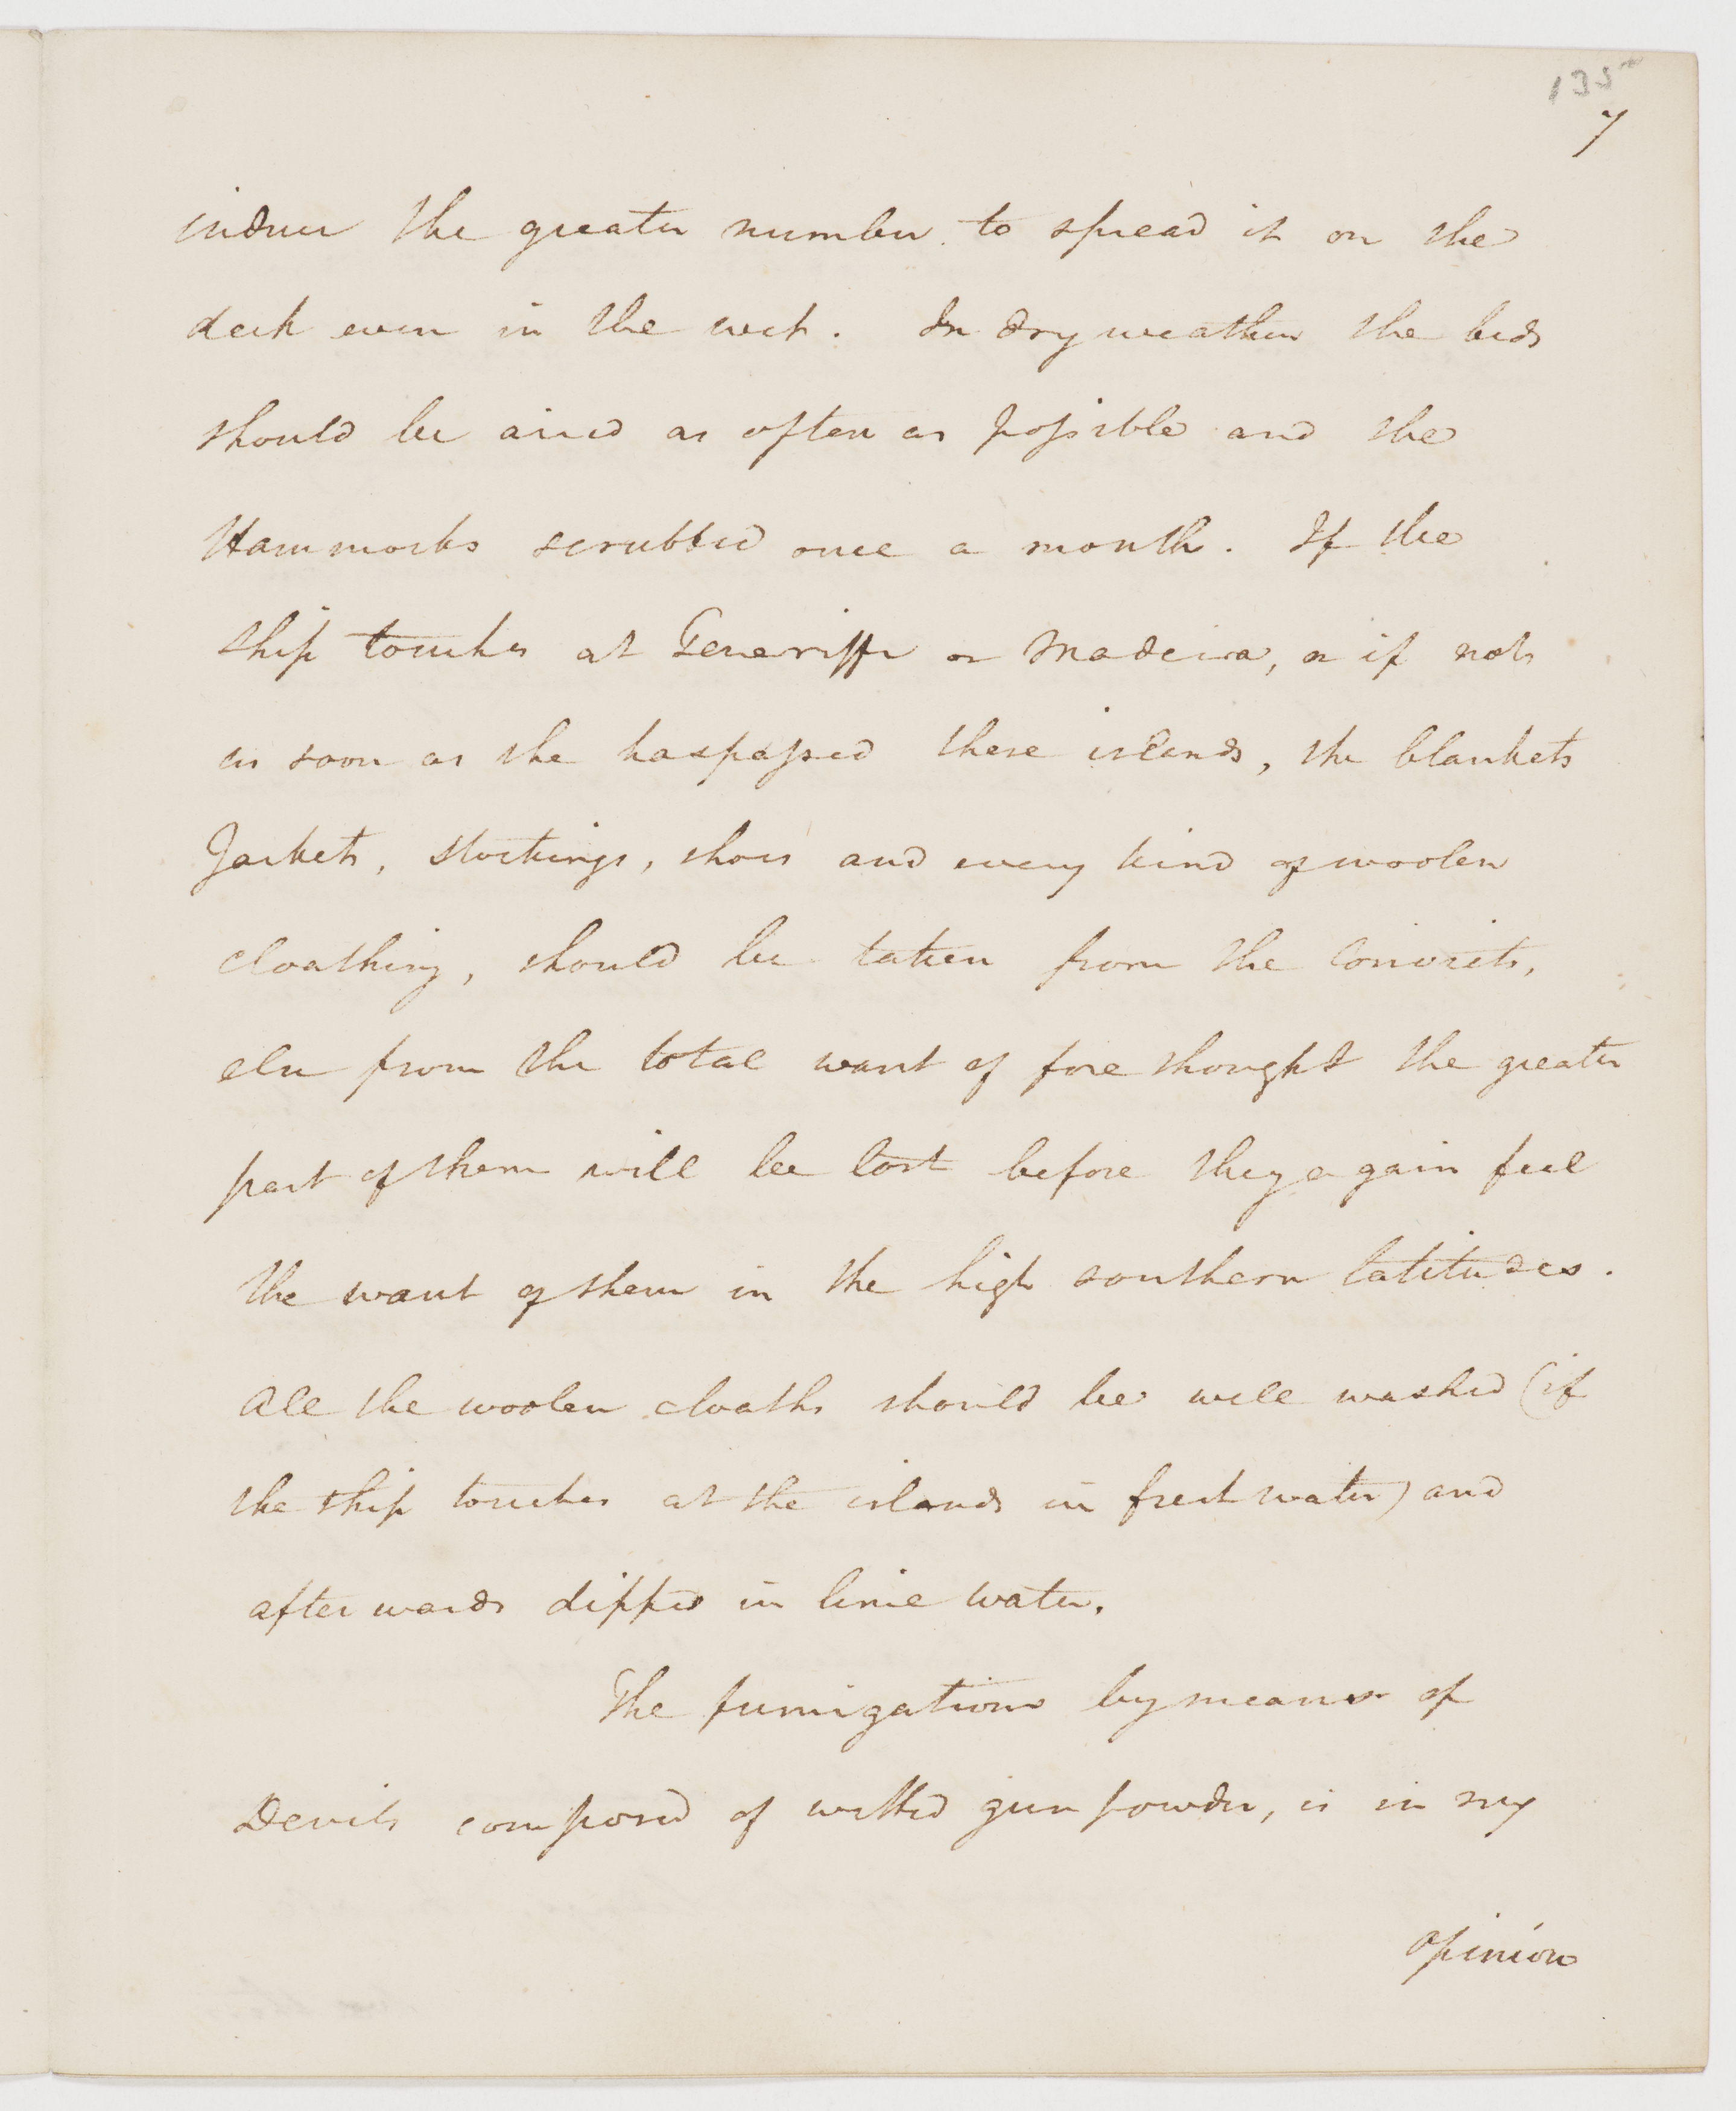 135
7
induce the greater number to spread it on the
deck even in the wet. In dry weather the beds
should be aired as often as possible and the
Hammocks scrubbed once a month. If the
ship touches at Teneriffe or Madeira, or if not
as soon as she has passed these islands, the blankets
Jackets, stockings, shoes and every kind of woolen
cloathing, should be taken from the Convicts,
else from the total want of fore thought the greater
part of them will be lost before they again feel
the want of them in the high southern latitudes.
All the woolen cloaths should be well washed (if
the ship touches at the islands in fresh water) and
after wards dipped in lime water.
The fumigations by means of
Devils composed of wetted gun powder, is in my
opinion